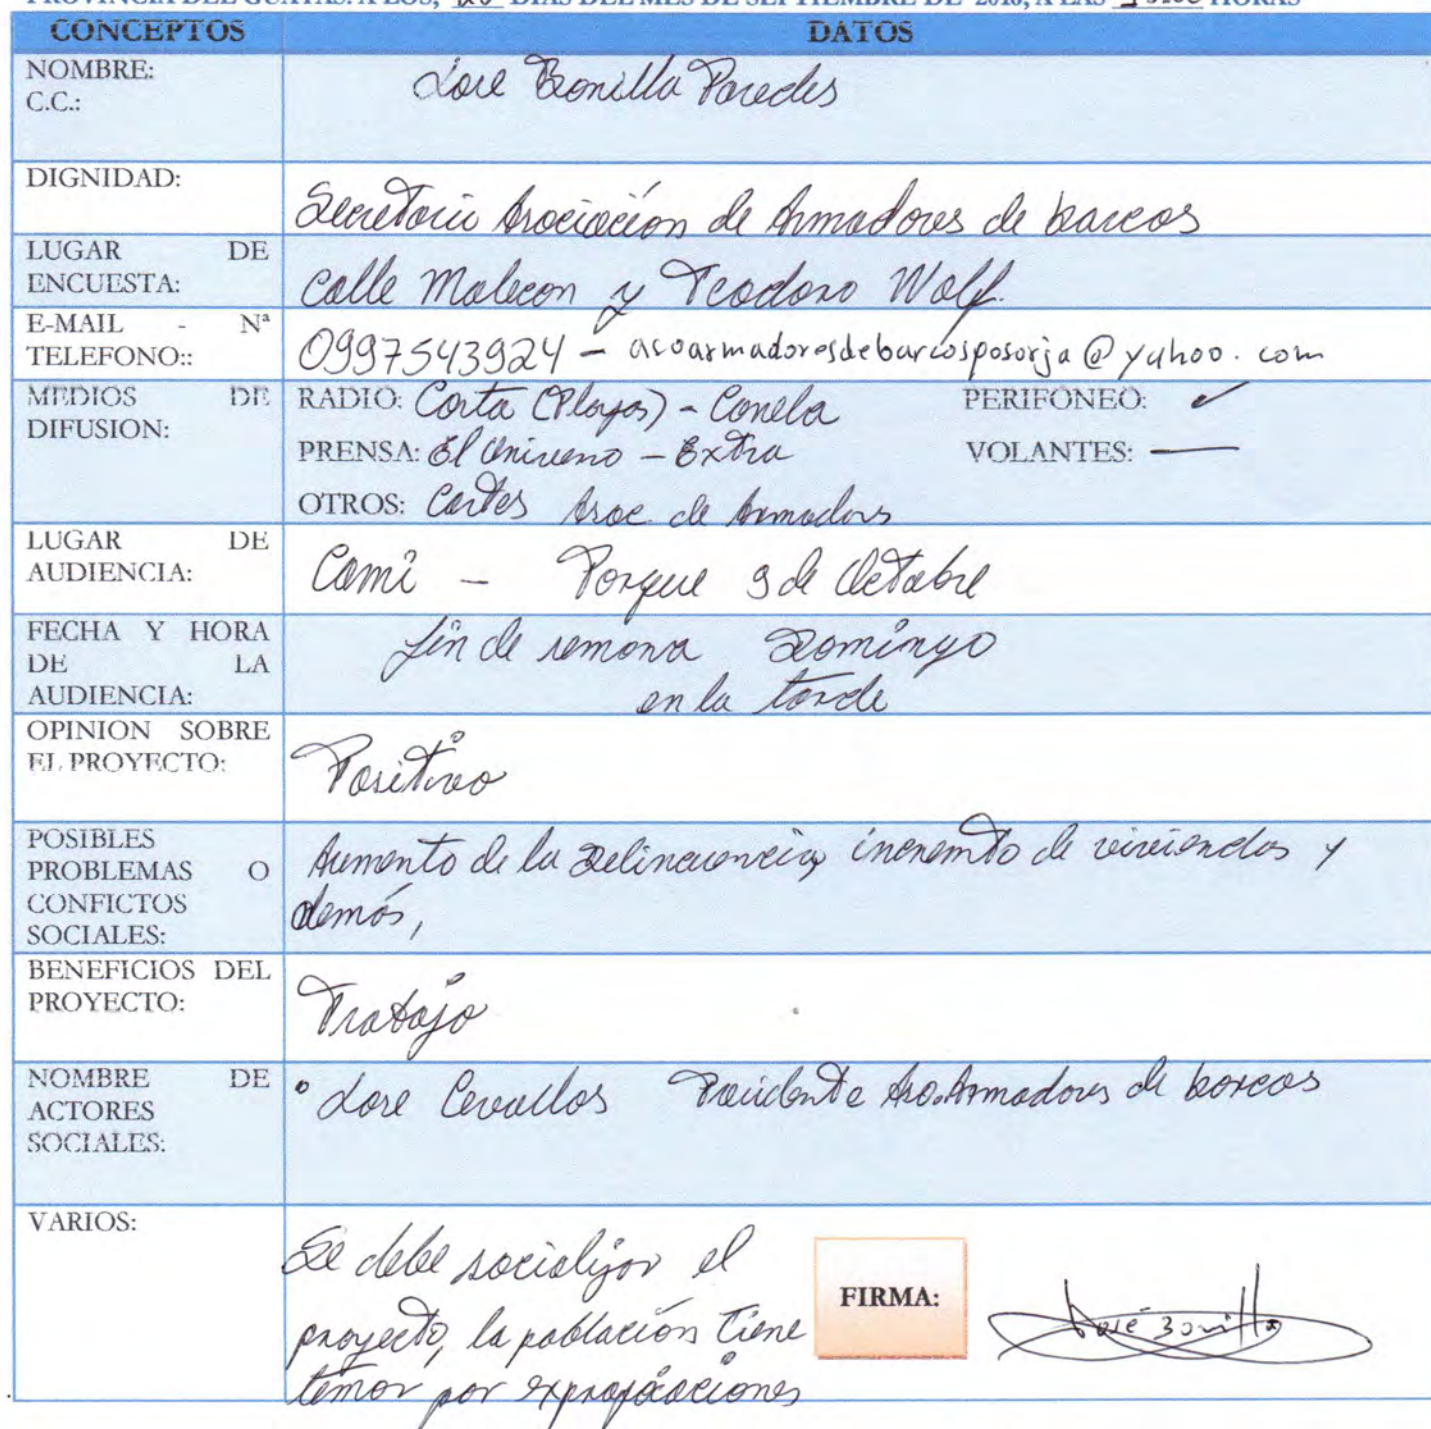 PROVINCIA DEL GUAYAS. A LOS, 20 DIAS DEL MES DE SEPTIEMBRE DE 2016, A LAS HORAS
CONCEPTOS DATOS
NOMBRE: José Bonilla Paredes
C.C.:
DIGNIDAD:
Secretario Asociación de Armadores de barcos
LUGAR DE
ENCUESTA: Calle Malecon y Teodoro Wolf.
E-MAIL - Nª
TELEFONO:: 0997543924 - asoarmadoresdebarcosposorja@yahoo.com
MEDIOS DE
DIFUSION:
RADIO: Costa (Playas) - Canela PERIFONEO: ✓
PRENSA: El Universo - Extra VOLANTES: —
OTROS: Cartes Asoc. de Armadors
LUGAR DE
AUDIENCIA: Cami - Parque 9 de Octubre
FECHA Y HORA
DE LA
AUDIENCIA:
fin de semana Domingo
en la tarde
OPINION SOBRE
EL PROYECTO: Positivo
POSIBLES
PROBLEMAS O
CONFICTOS
SOCIALES:
Aumento de la Delincuencia, incremto de viviendas y
demás,
BENEFICIOS DEL
PROYECTO: Trabajo
NOMBRE DE
ACTORES
SOCIALES:
° José Cevallos Presidente Aso. Armadores de barcos
VARIOS:
Se debe socializar el
proyecto, la población tiene
temor por expropiaciones
FIRMA: José Bonilla